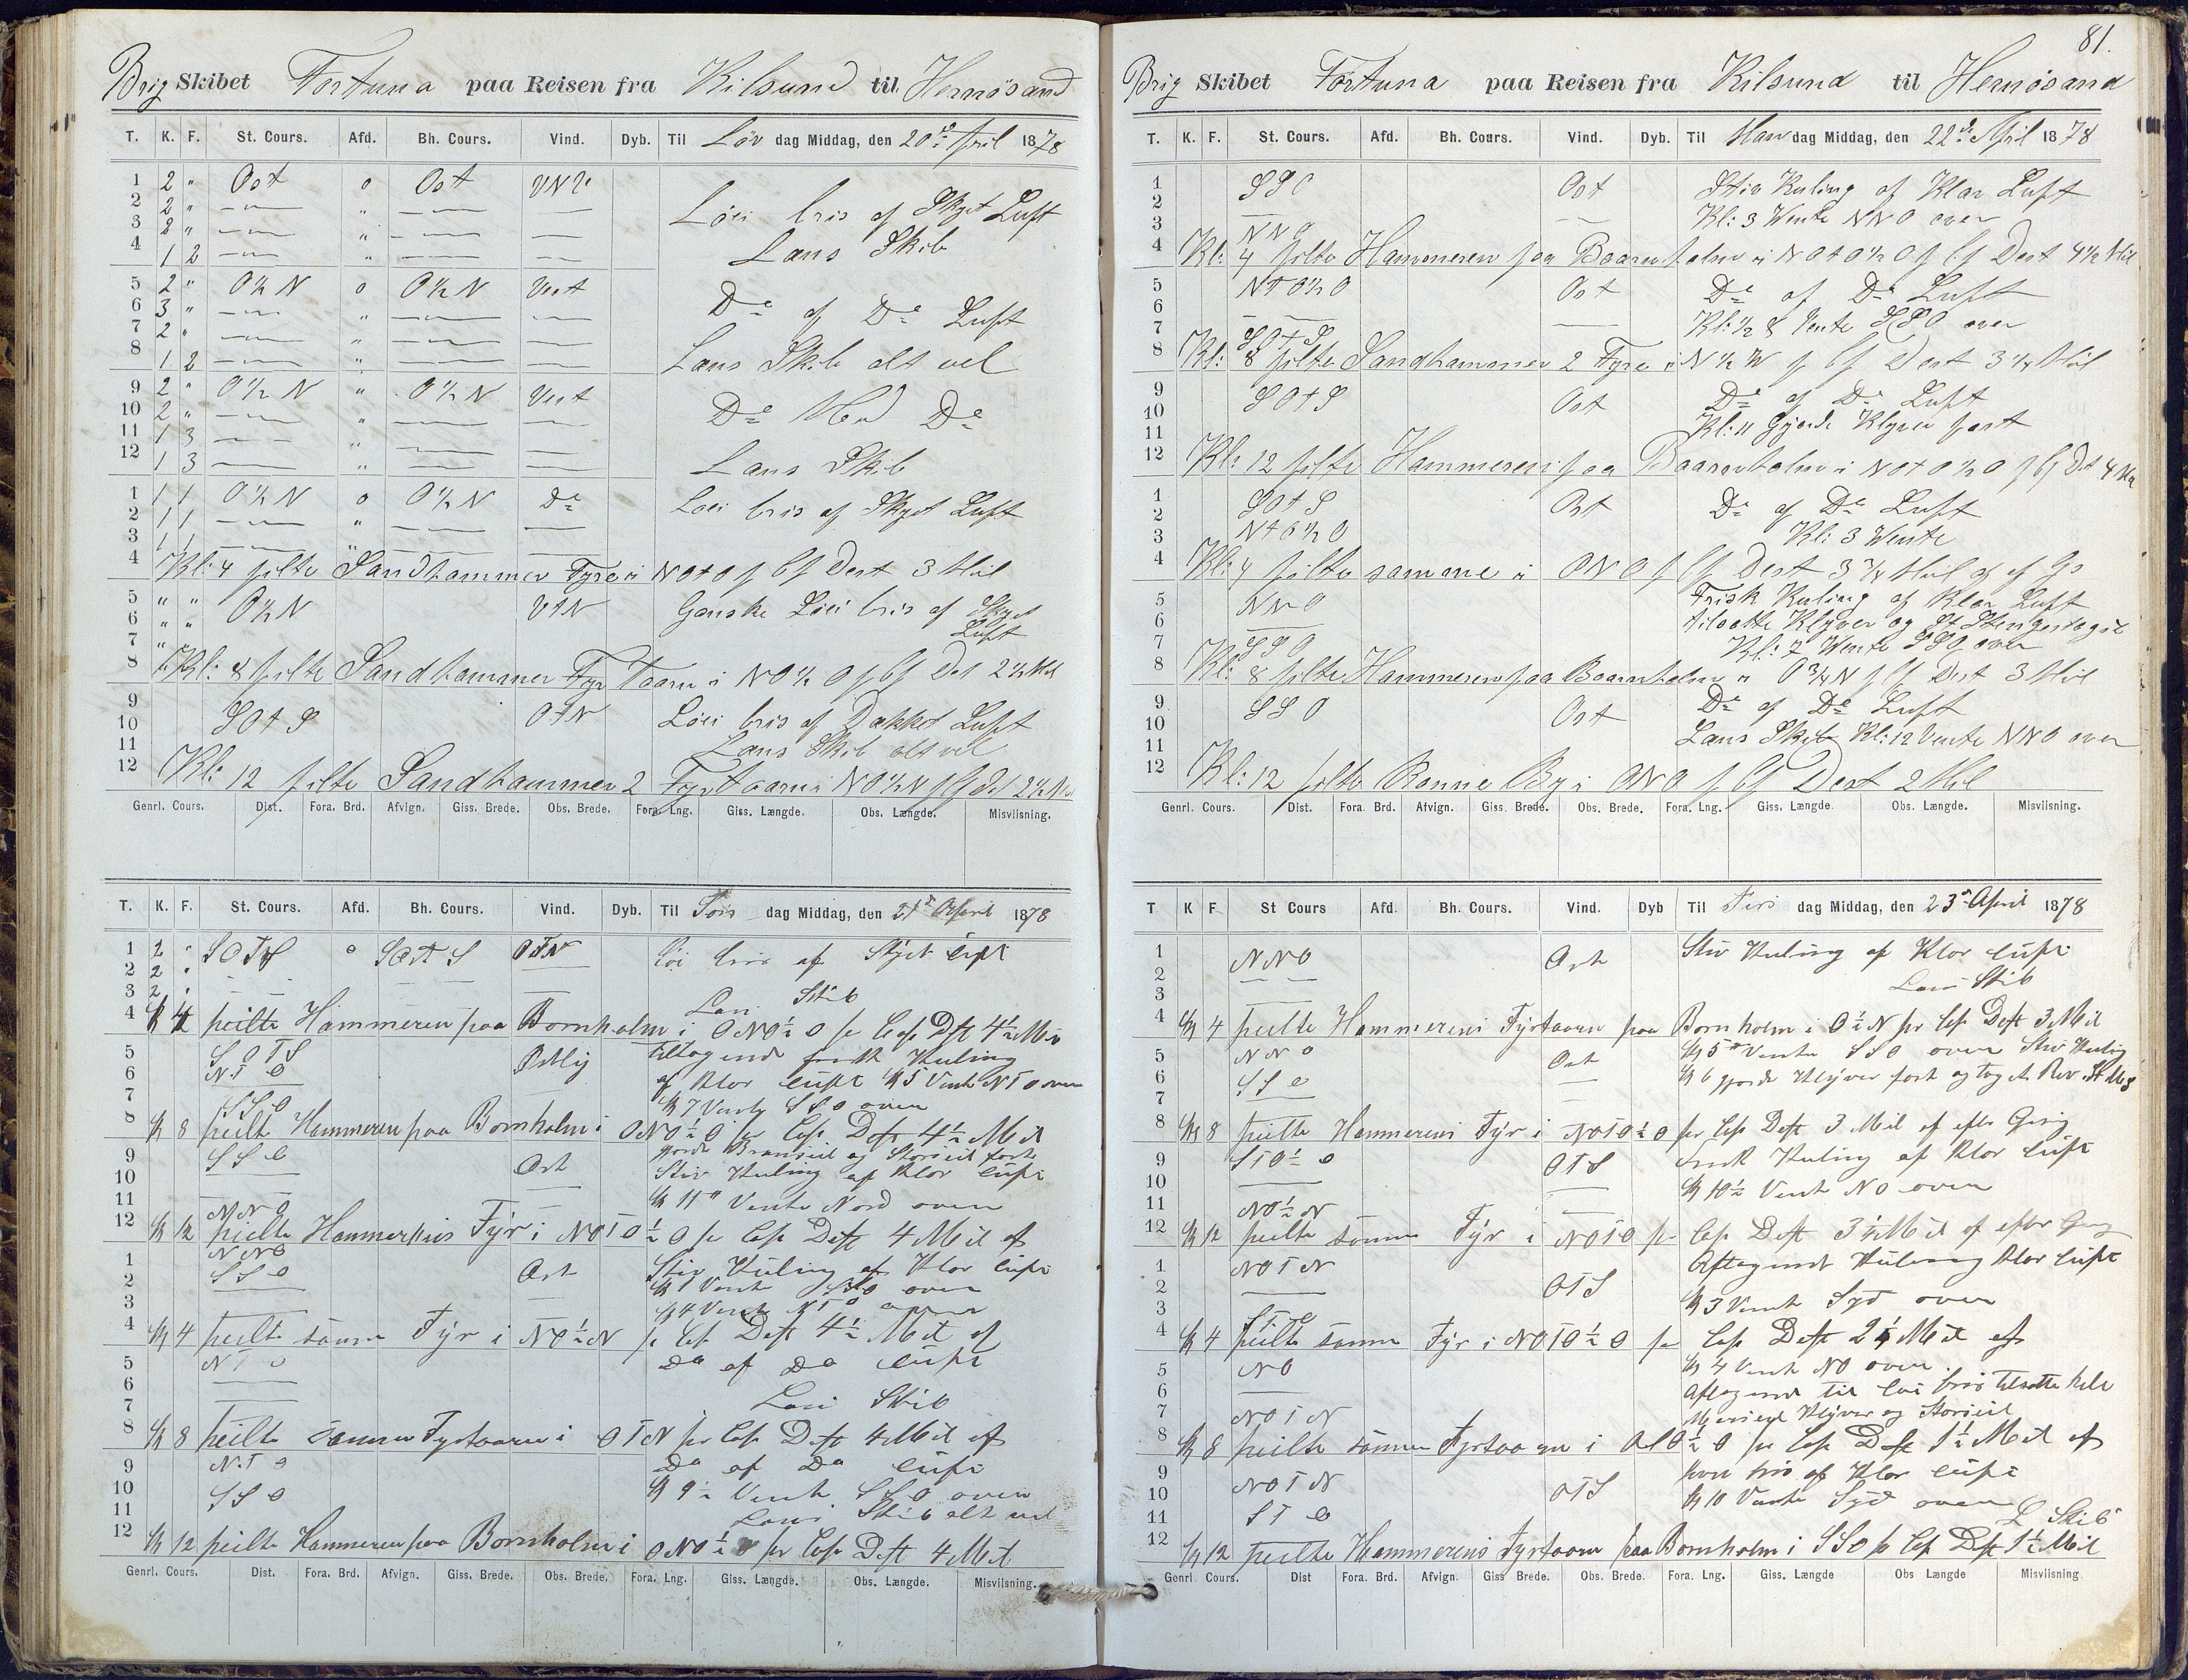 Brig Skibet Fortuna paa Reisen fra Kilsund til Hernösand
T. K. F. St. Cours. Afd. Bh. Cours. Vind. Dyb. Til Löv dag Middag, den 20de April 1878
1 2 " Ost o Ost VNV
2 2 " — " — —
3 2 " — " — — Löi bris af Skyet Luft
4 1 2 — " — — Lans Skib
5 2 " O½N o O½N Vest
6 3 " — " — — Do af Do Luft
7 2 " — " — —
8 1 2 — " — — Lans Skib alt vel
9 2 " O½N " O½N Vest
10 2 " — " — — Do Med Do
11 1 3 — " — —
12 1 3 — " — — Lans Skib
1 1 1 O½N o O½N Do Löi bris af Skyet Luft
2 1 1 — " — —
3 1 1 — " — —
4 Kl: 4 pilte Sandhammer Fyre i NOtO p Cp Dest 3 Mil
5 " " O½N VtN Ganske Löi bris af Skyet
6 " " Luft
7 "
8 Kl: 8 pilte Sandhammer Fyr Taarn i NO½O p Cp Dst 2½ Mil
9 SOtS OtN Löi bris af Dækket Luft
10
11 Lans Skib alt vel
12 Kl: 12 pilte Sandhammer 2 Fyrtaarn i NO½N p Cp Dst 2½ Mil
Genrl. Cours. Dist. Fora. Brd. Afvign. Giss. Brede. Obs. Brede. Fora. Lng. Giss. Længde. Obs. Længde. Misviisning.
T. K. F. St. Cours. Afd. Bh. Cours. Vind. Dyb. Til Sön dag Middag, den 21de April 1878
1 2 " SOTS o SOTS OTN löi bris af Skyet luft
2 2 " — —
3 2 " — — Lans Skib
4 Kl 4 peilte Hammeren paa Bornholm i ONO½O pr Cop Dst 4½ Mil
5 SOTS Ostlig tiltagende frisk Kuling
6 NTO af klar luft Kl 5 Vente NTO over
7 SSO Kl 7 Vente SSO over
8 Kl 8 peilte Hammeren paa Bornholm i ONO½O pr Cop Dst 4½ Mil
9 SSO Ost gjorde Bramseil og Storseil fast
10 Stiv Kuling af klar luft
11 NNO Kl 11" Vente Nord over
12 Kl 12 peilte Hammerens Fyr i NOTO½O pr Cop Dst 4 Mil af
NNO
1 SSO Ost Stiv Kuling af klar luft
2 Kl 1 Vente SSO over
3 Kl 4 Vente NTO over
4 Kl 4 peilte samme Fyr i NO½N pr Cop Dst 4½ Mil af
5 NTO Do af Do luft
6
7 Lans Skib
8 Kl 8 peilte samme Fyrtaarn i OTN pr Cop Dst 4 Mil af
9 NTO Do af Do luft
10 SSO Kl 9½ Vente SSO over
11 Lans Skib alt vel
12 Kl 12 peilte Hammeren paa Bornholm i ONO½O pr Cop Dst 4 Mil
Genrl. Cours. Dist. Fora. Brd. Afvign. Giss. Brede. Obs. Brede. Fora. Lng. Giss. Længde. Obs. Længde. Misviisning.
81.
Brig Skibet Fortuna paa Reisen fra Kilsund til Hernösand
T. K. F. St. Cours. Afd. Bh. Cours. Vind. Dyb. Til Man dag Middag, den 22de April 1878
1 SSO Ost Stiv Kuling af Klar Luft
2 — — Kl: 3 Vente NNO over
3 NNO
4 Kl: 4 pilte Hammeren paa Baarnholm i NOtO½O p Cp Dest 4½ Mil
5 NtO½O Ost Do af Do Luft
6 — — Kl: ½ 8 Vente SSO over
7 SOtS
8 Kl: 8 pilte Sandhammer 2 Fyre i N½W p Cp Dest 3¼ Mil
9 SOtS Ost Do af Do Luft
10 Kl: 11 Gjorde Klyver fast
11
12 Kl: 12 pilte Hammeren paa Baarnholm i NOtO½O p Cp Dst 4 Mil
1 SOtS Ost Do af Do Luft
2 NtO½O Kl: 3 Wente
3
4 Kl: 4 pilte samme i ONO p Cp Dest 3¾ Mil af
5 NNO Frisk Kuling af Klar Luft
6 — tilsatte Klyver og
7 SSO Kl: 7 Wente SSO over
8 Kl: 8 pilte Hammeren paa Baarnholm i O¾N p Cp Dest 3 Mil
9 SSO Ost Do af Do Luft
10 Lans Skib Kl: 12 Vente NNO over
11
12 Kl: 12 pilte Rønne By i ONO p Cp Dest 2 Mil
Genrl. Cours. Dist. Fora. Brd. Afvign. Giss. Brede. Obs. Brede. Fora. Lng. Giss. Længde. Obs. Længde. Misviisning.
T K F St Cours Afd. Bh. Cours. Vind. Dyb Til Tirs dag Middag, den 23de April 1878
1 NNO Ost Stiv Kuling af Klar luft
2 — — Lans Skib
3
4 Kl 4 peilte Hammerens Fyrtaarn paa Bornholm i O½N pr Cop Dst 3 Mil
5 NNO Ost Kl 5" Vente SSO over Stiv Kuling
6 SSO — Kl 6 gjorde Klyver fast og toget Rev
7
8 Kl 8 peilte Hammerens Fyr i NOTO½O pr Cop Dst 3 Mil af efter Gisg
9 STO½O OTS frisk Kuling af klar luft
10 Kl 10½ Vente NO over
11 NO½N
12 Kl 12 peilte samme Fyr i NOTO pr Cop Dst 3½ Mil af efter Gisg
1 NOTN OTS Aftagende Kuling klar luft
2
3 STO Kl 3 Vente Syd over
4 Kl 4 peilte samme Fyr i NOTO½O pr Cop Dst 2½ Mil af
5 NO Kl 4 Vente NO over
6 Aftagende til löi bris tilsatte hele
7 NOTN Mersseil Klyver og Storseil
8 Kl 8 peilte samme Fyrtaarn i pr Cop Dst 1½ Mil af
9 NOTN OTS bris af klar luft
10 Kl 10 Vente Syd over
11 STO L Skib
12 Kl 12 peilte Hammerens Fyrtaarn paa Bornholm i SSO pr Cop Dst 1½ Mil
Genrl Cours. Dist Fora. Brd. Afvign. Giss Brede. Obs. Brede. Fora. Lng. Giss. Længde Obs Længde Misviisning